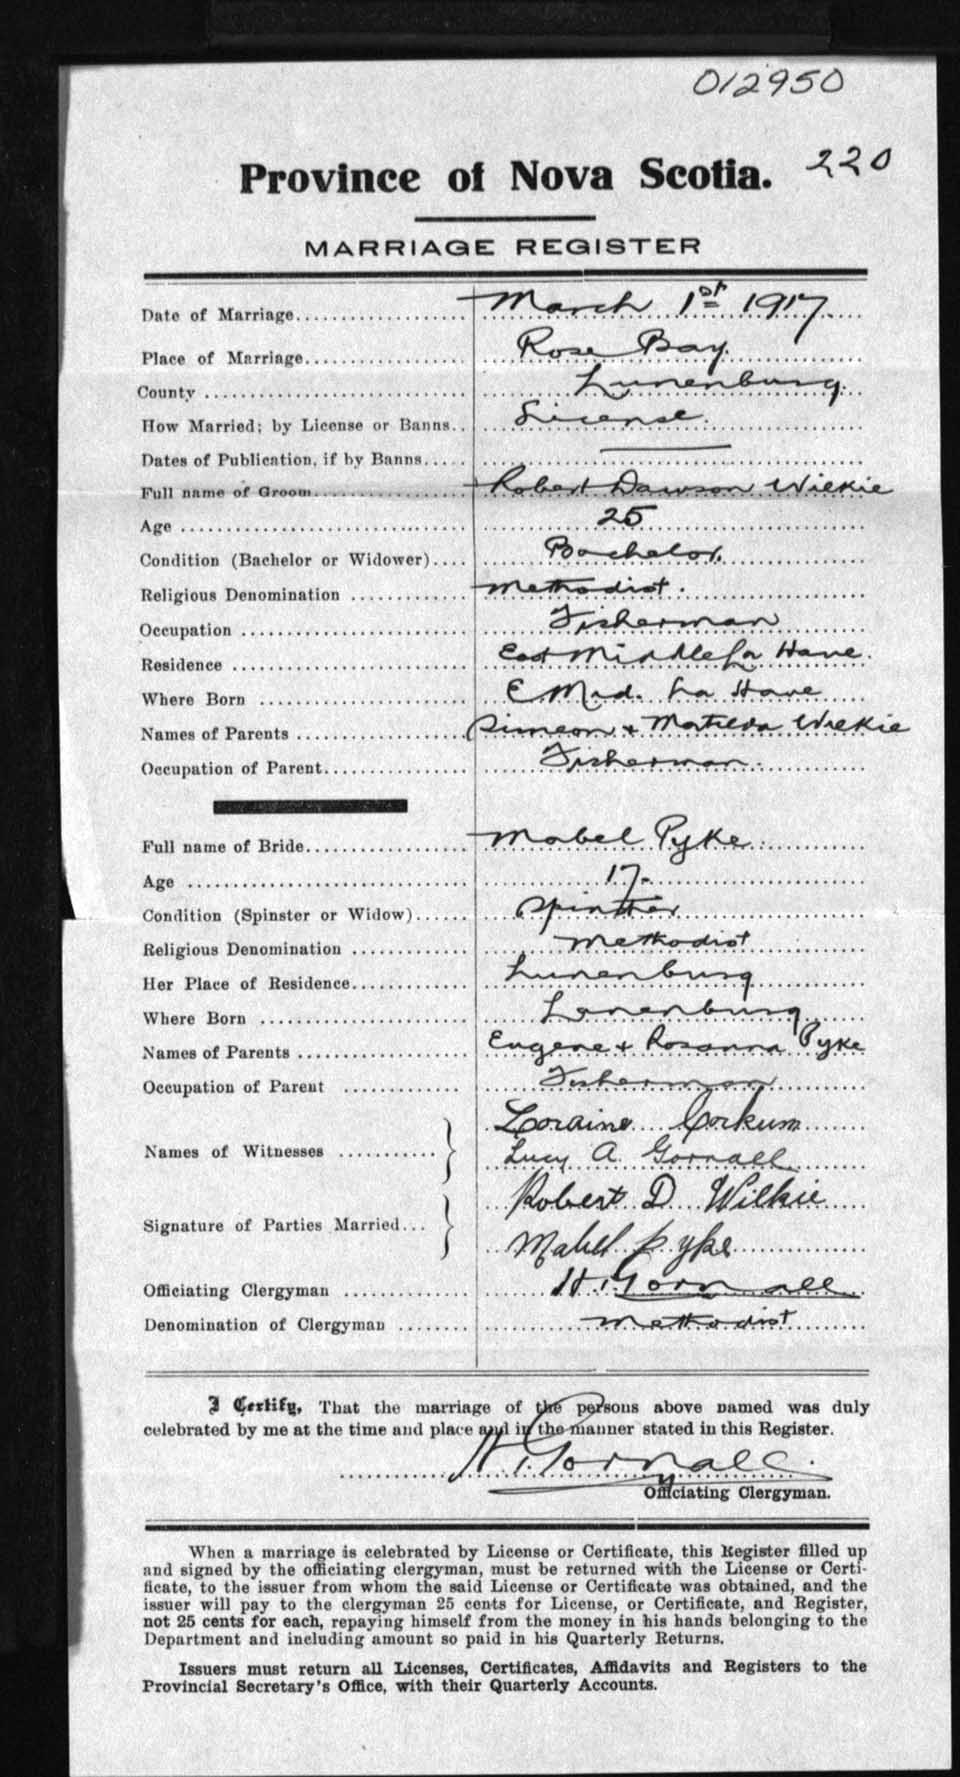 012950
220
Province of Nova Scotia.
MARRIAGE REGISTER
Date of Marriage.................... March 1st 1917
Place of Marriage................... Rose Bay
County ............................. Lunenburg.
How Married; by License or Banns.. License.
Dates of Publication, if by Banns..... ———
Full name of Groom.................. Robert Dawson Wilkie
Age ................................ 25
Condition (Bachelor or Widower).... Bachelor.
Religious Denomination ............. Methodist.
Occupation ......................... Fisherman
Residence .......................... East Middle La Have.
Where Born ......................... E Mid. La Have
Names of Parents ................... Simeon + Matilda Wilkie
Occupation of Parent................ Fisherman.
Full name of Bride.................. Mabel Pyke
Age ................................ 17.
Condition (Spinster or Widow)...... Spinster
Religious Denomination ............. Methodist
Her Place of Residence............. Lunenburg
Where Born ......................... Lunenburg
Names of Parents ................... Eugene + Rosanna Pyke
Occupation of Parent ............. Fisherman
Names of Witnesses ........... } Loraine Corkum
Lucy A. Gornall
Signature of Parties Married... } Robert D Wilkie
Mabel Pyke
Officiating Clergyman .............. H. Gornall
Denomination of Clergyman ........ Methodist
I Certify, That the marriage of the persons above named was duly
celebrated by me at the time and place and in the manner stated in this Register.
H. Gornall.
Officiating Clergyman.
When a marriage is celebrated by License or Certificate, this Register filled up
and signed by the officiating clergyman, must be returned with the License or Certi-
ficate, to the issuer from whom the said License or Certificate was obtained, and the
issuer will pay to the clergyman 25 cents for License, or Certificate, and Register,
not 25 cents for each, repaying himself from the money in his hands belonging to the
Department and including amount so paid in his Quarterly Returns.
Issuers must return all Licenses, Certificates, Affidavits and Registers to the
Provincial Secretary's Office, with their Quarterly Accounts.